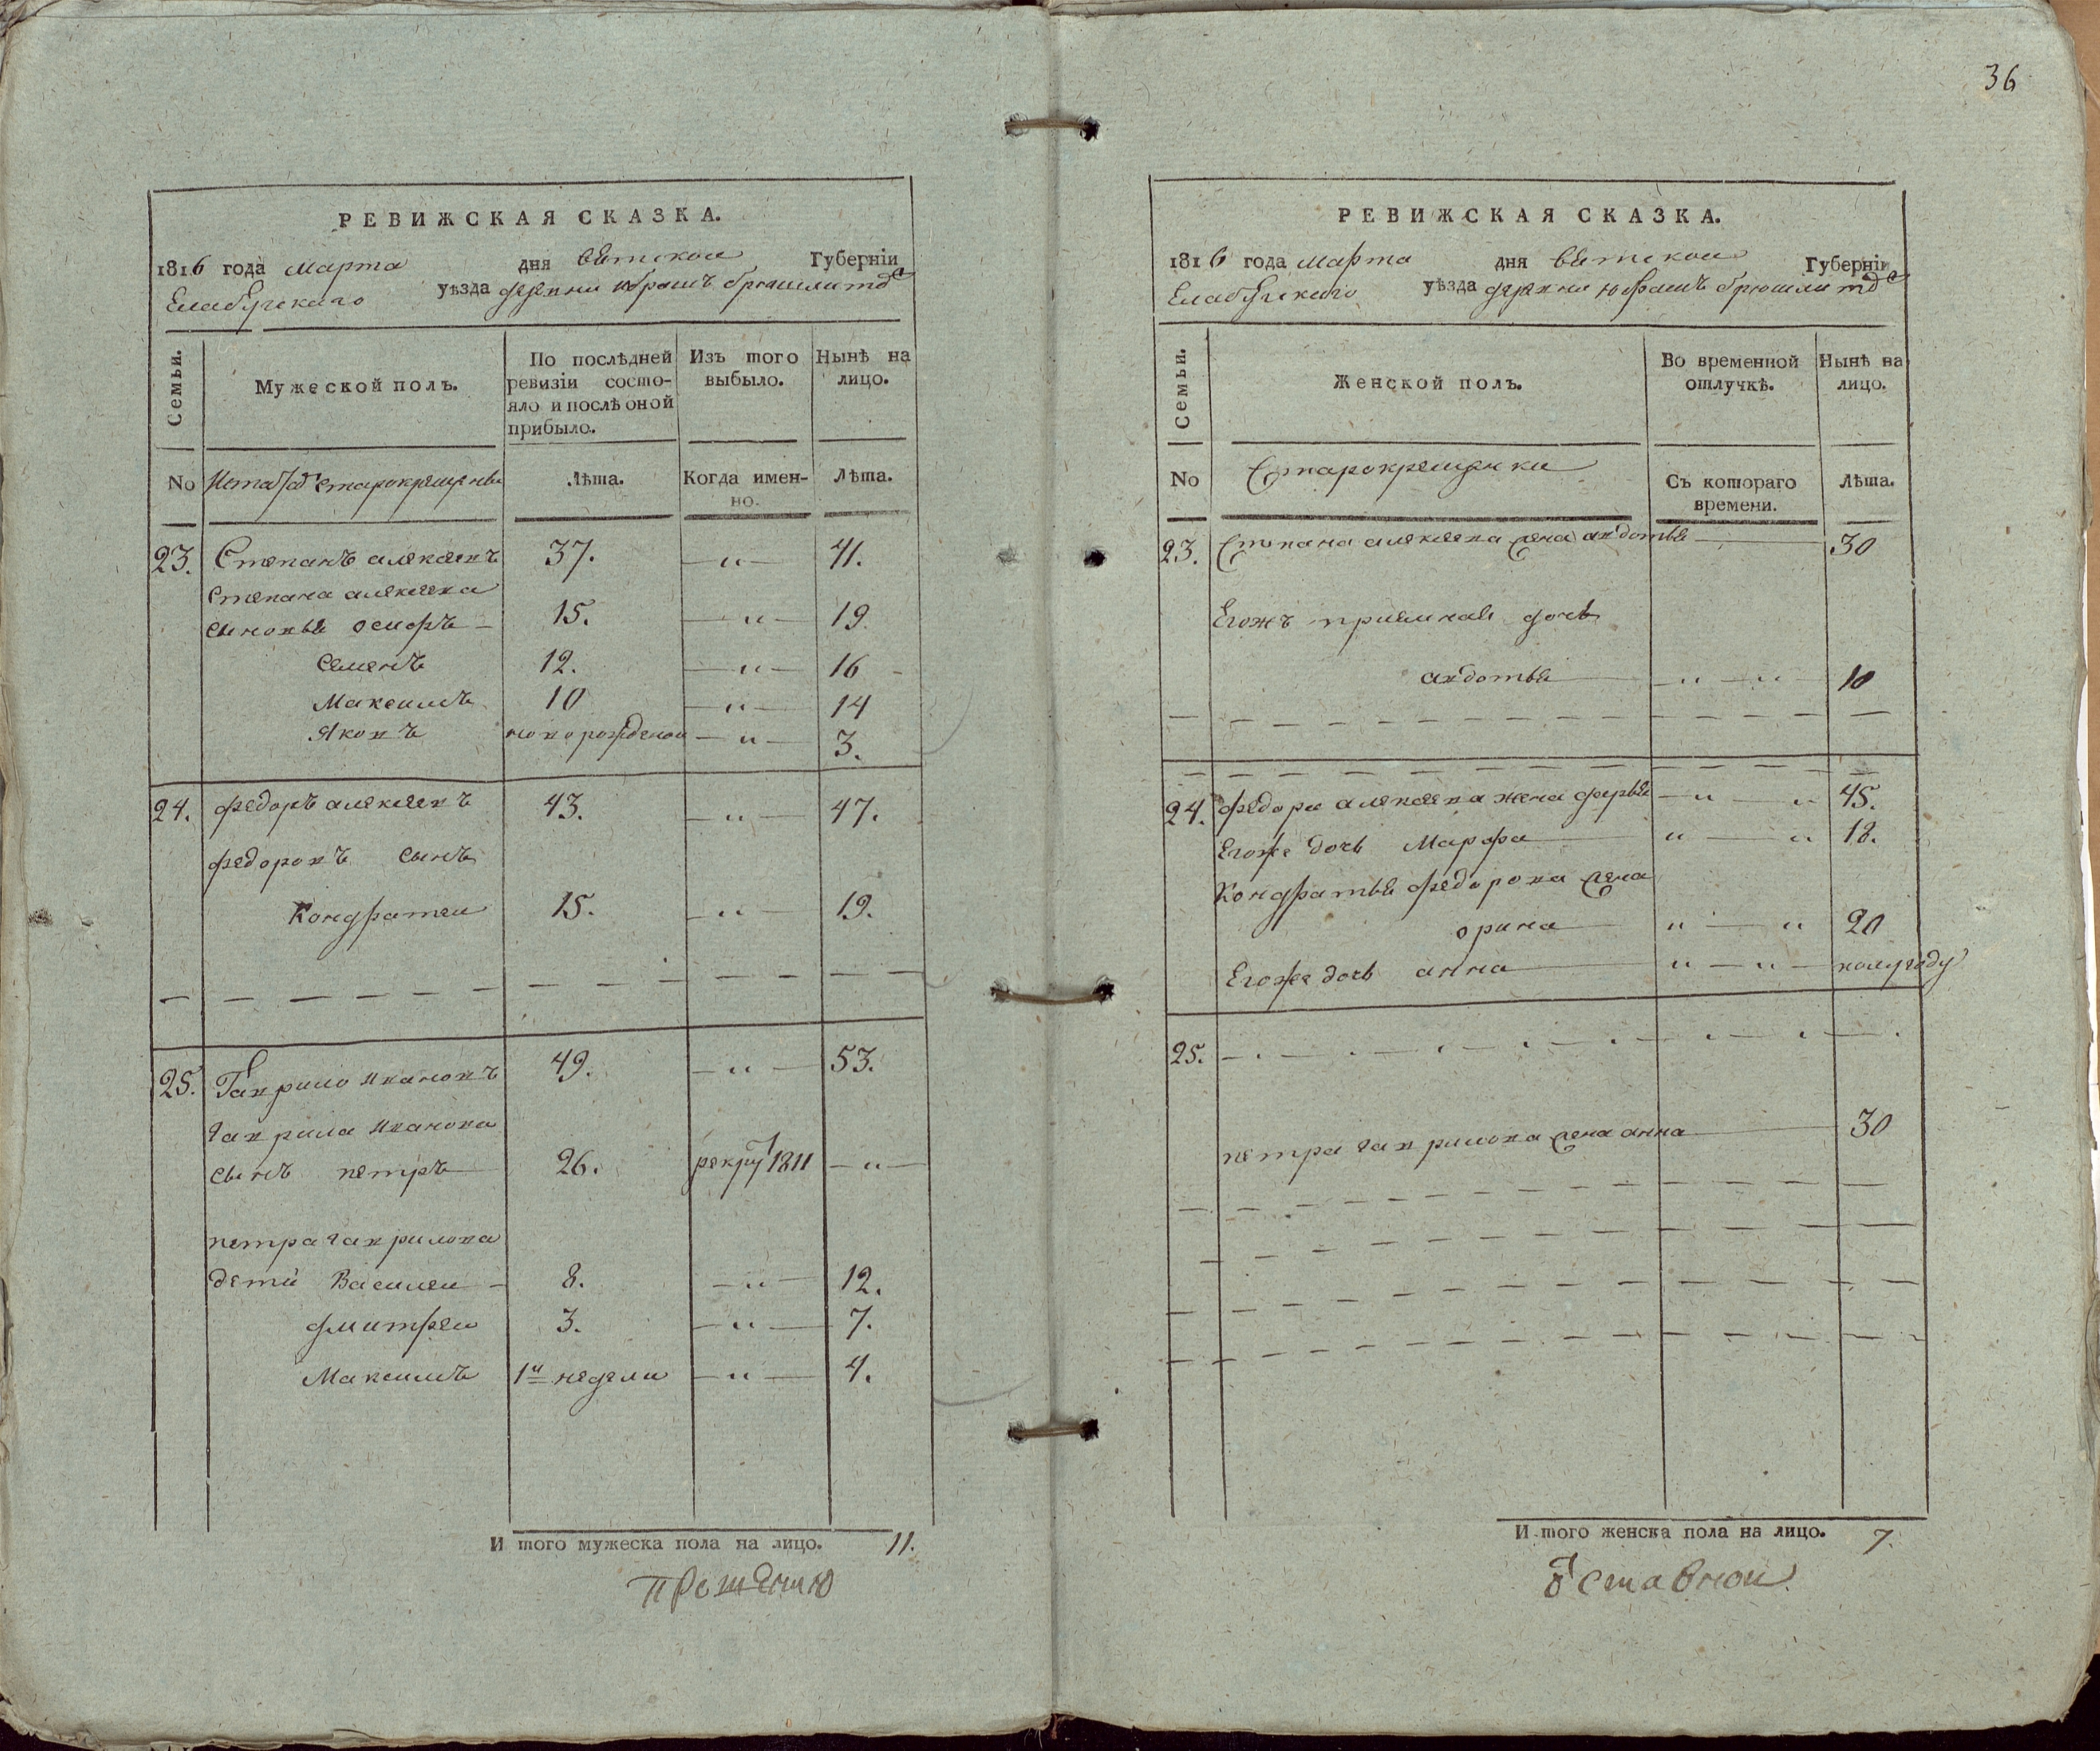 36
РЕВИЖСКАЯ СКАЗКА.
1816 года марта дня вятскои Губерніи
Елабускаго уѣзда деревни юрашъ брюшли тож
Семьи.
Мужеской полъ.
По послѣдней ревизіи состо-
яло и послѣ оной прибыло.
Изъ того выбыло.
Нынѣ на лицо.
No старокрещены
Лѣта.
Когда имен-
но.
Лѣта.
23. Степанъ алексеевъ 37. — " — 41.
Степана алексеева
сыновья 15. — " — 19
Семенъ 12. — " — 16
Максимъ 10 — " — 14
Яковъ новорожденои — " — 3.
24. федоръ алексеевъ 43. — " — 47.
федоровъ сынъ
Кондратеи 15. — " — 19.
25. Гаврило ивановъ 49. — " — 53.
гаврила иванова
сынъ петръ 26. рекрут 1811 — " —
петра гаврилова
дети Василеи 8. — " — 12.
дмитреи 3. — " — 7.
Максимъ 1и недели — " — 4.
И того мужеска пола на лицо. 11.
РЕВИЖСКАЯ СКАЗКА.
1816 года марта дня вятскои Губерніи
Елабускаго уѣзда деревни юрашъ брюшли тож
Семьи.
Женской полъ.
Во временной отлучкѣ.
Нынѣ на лицо.
No Старокрещенки
Съ котораго времени.
Лѣта.
23. Степана алексеева жена авдотья 30
Егожъ приемная дочь
авдотья — " — " 10
24. федора алексеева жена дарья — " — " 45.
Егоже дочь Марфа " — " 18.
Кондратья федорова жена
орина " — " 20
Егоже дочь анна " — " — полугоду
25.
петра гаврилова жена анна 30
И того женска пола на лицо. 7.